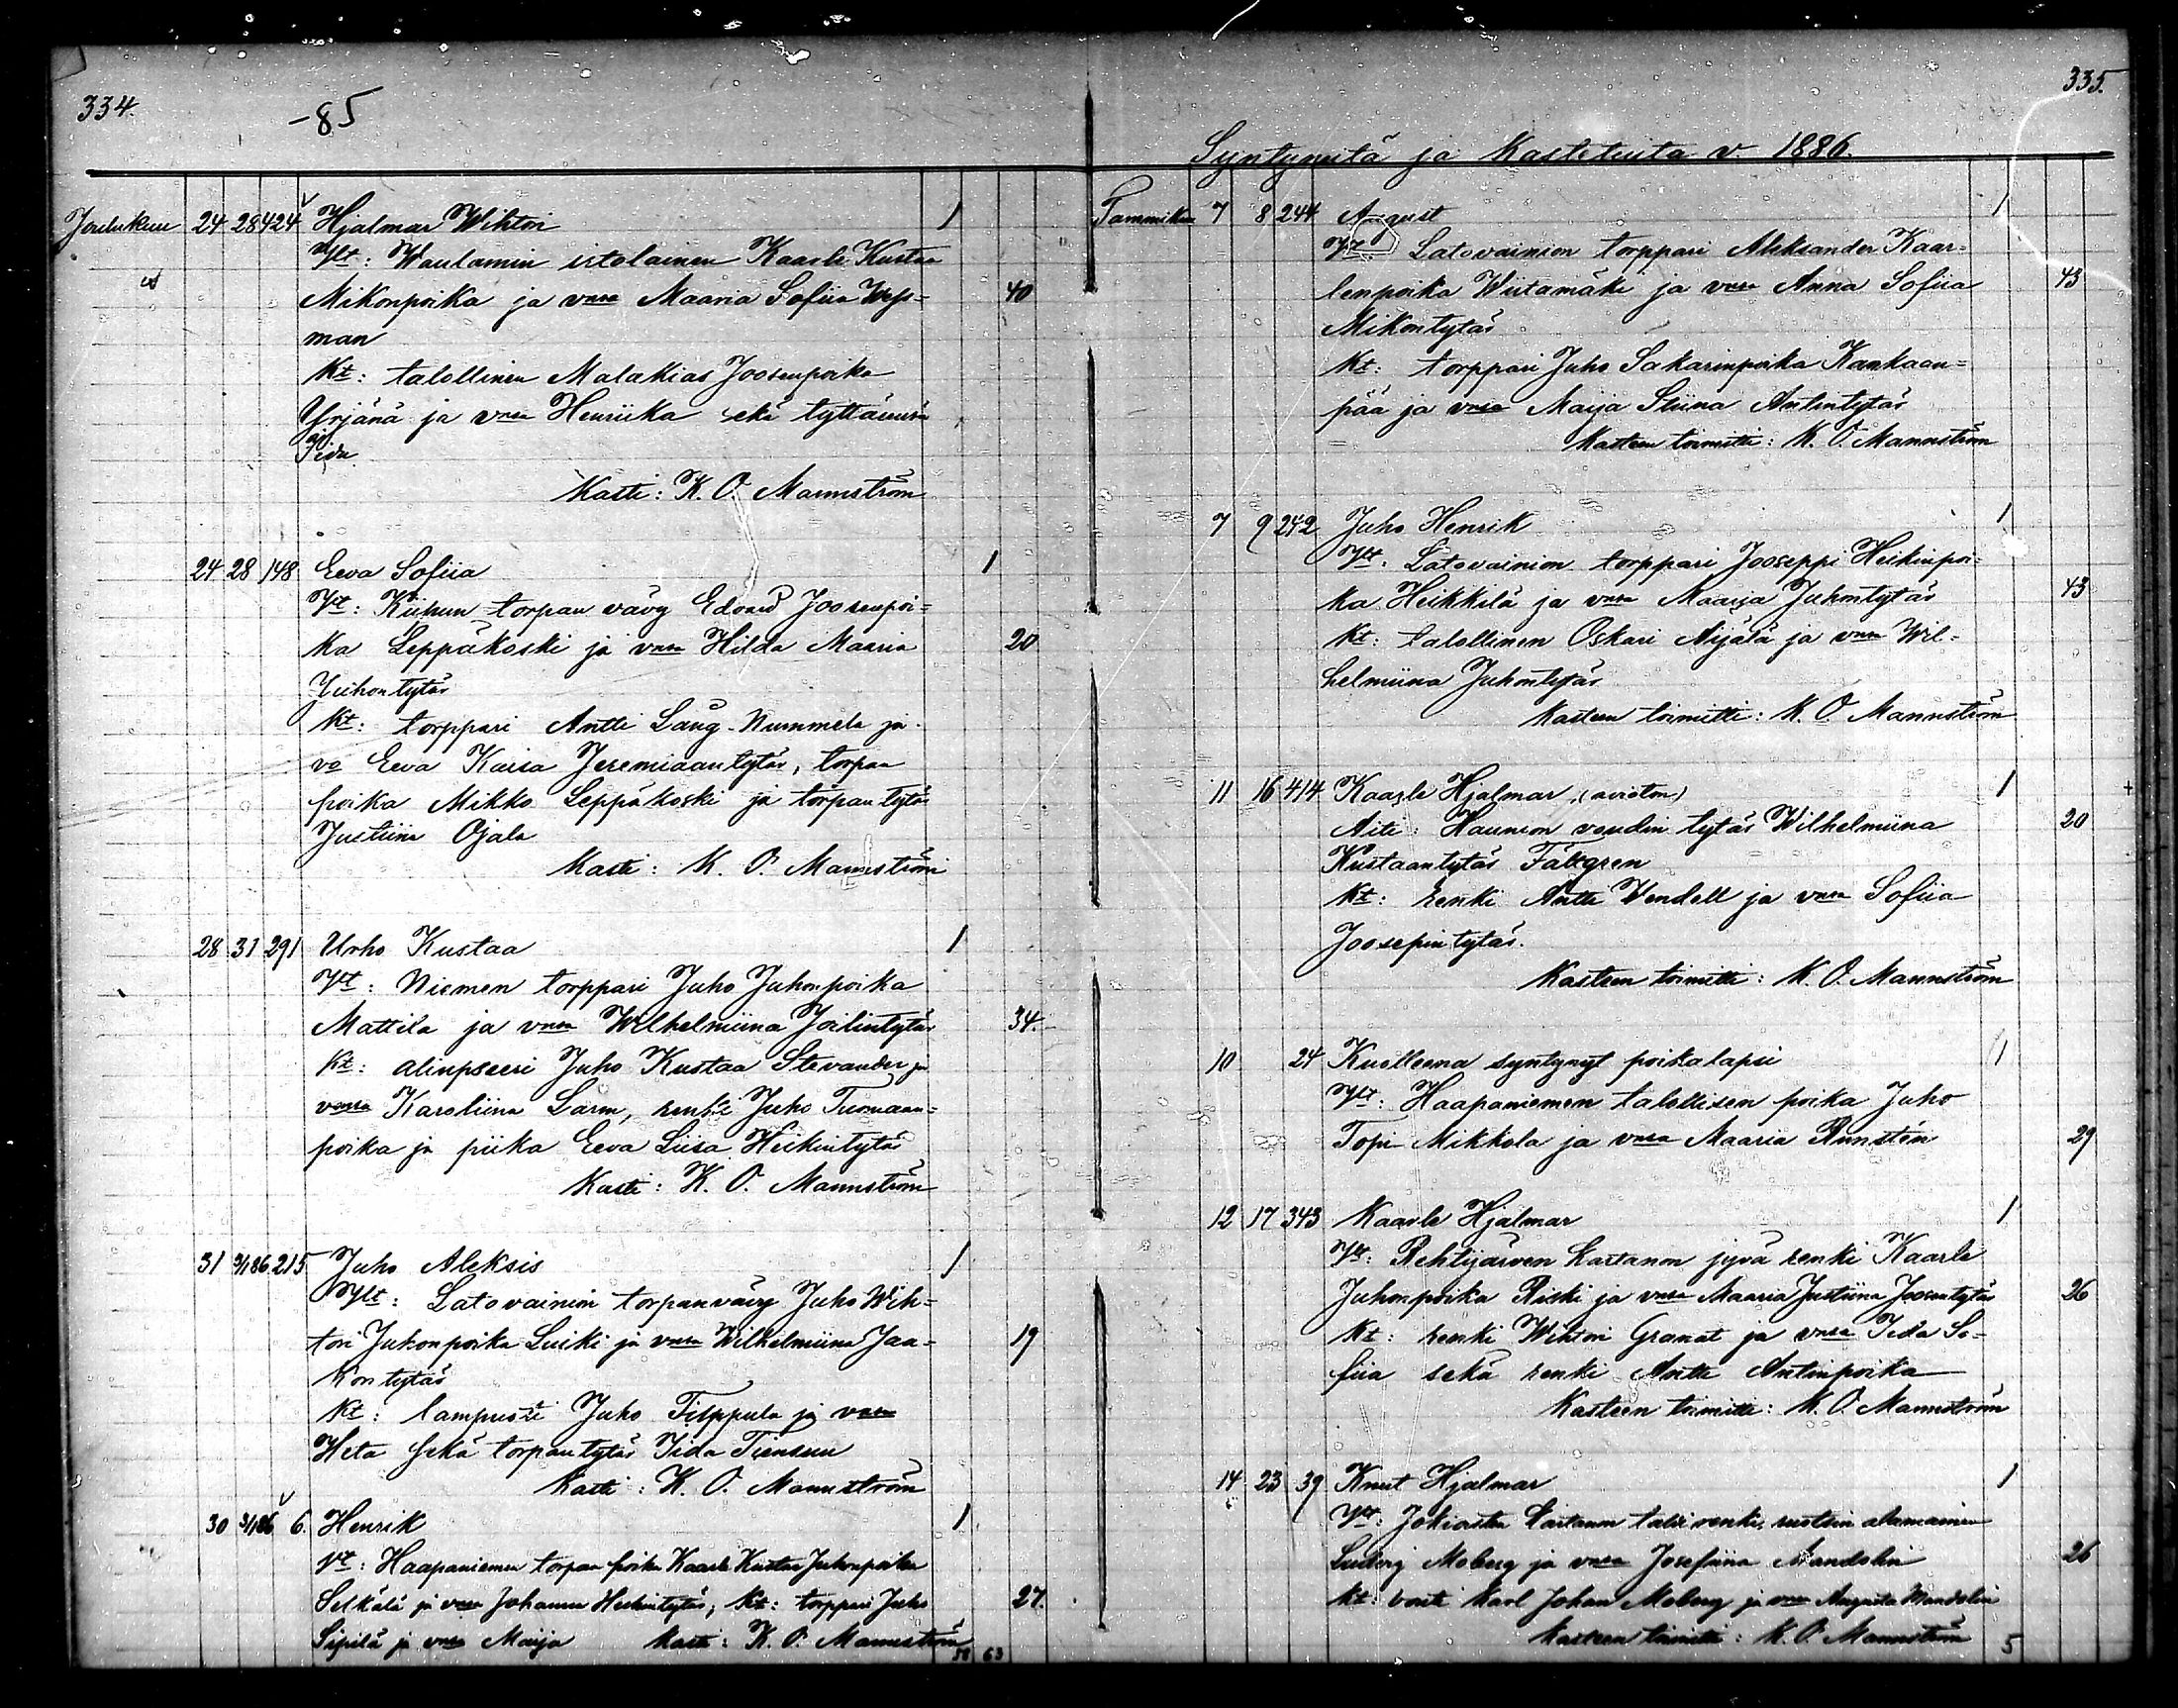 334.
-85
Joulukuu 24 28 424 Hjalmar Wihtori 1
Vt: Waulamin itolainen Kaarle Kustaa
Mikonpoika ja vmsa Maaria Sofiia Wess= 40
man
Kt: talollinen Malakias Joosenpoika
Yrjänä ja vmsa Henriika sekä tyttärensä
Iida
Kasti: K. O. Mannström
24 28 148 Eeva Sofiia 1
Vt: torpan vävy Edvard Joosenpoi=
ka Leppäkoski ja vmsa Hilda Maaria 20
Juhontytär
Kt: torppari Antti Lång-Nummela ja
vo Eeva Kaisa Jeremiaantytär, torpan
poika Mikko Leppäkoski ja torpan tytär
Justiina Ojala
Kasti: K. O. Mannström
28 31 291 Urho Kustaa 1
Vt: Niemen torppari Juho Juhonpoika
Mattila ja vmsa Wilhelmiina Joilintytär 34.
Kt: alinpseeri Juho Kustaa Stevander ja
vmsa Karoliina Larm, renki Juho Tuomaan=
poika ja piika Eeva Liisa Heikintytär
Kasti: K. O. Mannström
31 3/1 86 215 Juho Aleksis 1
Vt: Latovainion torpanvävy Juho Wih=
tori Juhonpoika Luiki ja vmsa Wilhelmiina Jaa= 19
kontytär
Kt: lampuoti Juho Tilppula ja vmsa
Heta sekä torpantytär Iida Tiensuu
Kasti: K. O. Mannström
30 3/1 86 6. Henrik 1
Vt: Haapaniemen torpan poika Kaarle Kustaa Juhonpoika
Selkälä ja vmsa Johanna Heikintytär; Kt: torppari Juho 27.
Sipilä ja vmsa Maija Kasti: K. O. Mannström
58 63
335.
Syntyneitä ja Kastetuita v. 1886.
Tammikuu 7 8 244 August 1
Vt Latovainion torppari Aleksander Kaar=
lenpoika Wiitamäki ja vmsa Anna Sofiia 43
Mikontytär
Kt: torppari Juho Sakarinpoika Kankaan=
pää ja vmsa Maija Stiina Antintytär
Kasteen toimitti: K. O. Mannström
7 9 242 Juho Henrik 1
Vt: Latovainion torppari Jooseppi Heikinpoi=
ka Heikkilä ja vmsa Maarja Juhontytär 43
Kt: talollinen Oskari Äijälä ja vmsa Wil=
helmiina Juhontytär
Kasteen toimitti: K. O. Mannström
11 16 414 Kaarle Hjalmar, (avioton) 1
Äiti: Haunion voudin tytär Wilhelmiina 20
Kustaantytär Fältgren
Kt: renki Antti Wendell ja vmsa Sofiia
Joosepin tytär.
Kasteen toimitti: K. O. Mannström
10 24 Kuolleena syntynyt poikalapsi 1
Vt: Haapaniemen talollisen poika Juho
Topi Mikkola ja vmsa Maaria Runstén 29
12 17 343 Kaarle Hjalmar 1
Vt: Rehtijärven kartanon jyvä renki Kaarle
Juhonpoika Riski ja vmsa Maaria Justiina Joosentytär 26
Kt: renki Wihtori Granat ja vmsa Iida So=
fiia sekä renki Antti Antinpoika
Kasteen toimitti: K. O. Mannström
14 23 39 Knut Hjalmar 1
Vt: Jokioisten kartanon talli renki, ruotsin alamainen
Ludvig Moberg ja vmsa Josefiina Mandolin 26
Kt: vouti Karl Johan Moberg ja vmsa Augusta Mandolin
Kasteen toimitti: K. O. Mannström
5